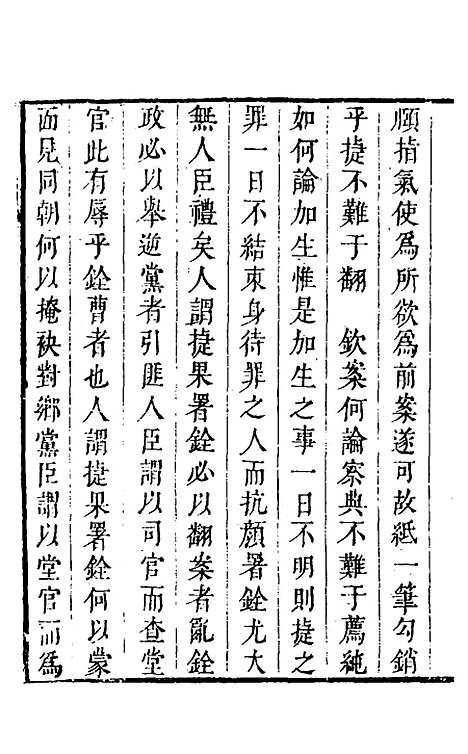 頤指氣使爲所欲爲前案遂可故紙一筆勾銷
乎㨗不難于翻　欽案何論察典不難于薦純
如何論加生惟是加生之事一日不明則㨗之
罪一日不結束身待罪之人而抗顏署銓尤大
無人臣禮矣人謂㨗果署銓必以翻案者亂銓
政必以舉逆黨者引匪人臣謂以司官而查堂
官此有辱乎銓曹者也人謂㨗果署銓何以蒙
面見同朝何以掩袂對鄉黨臣謂以堂官而爲